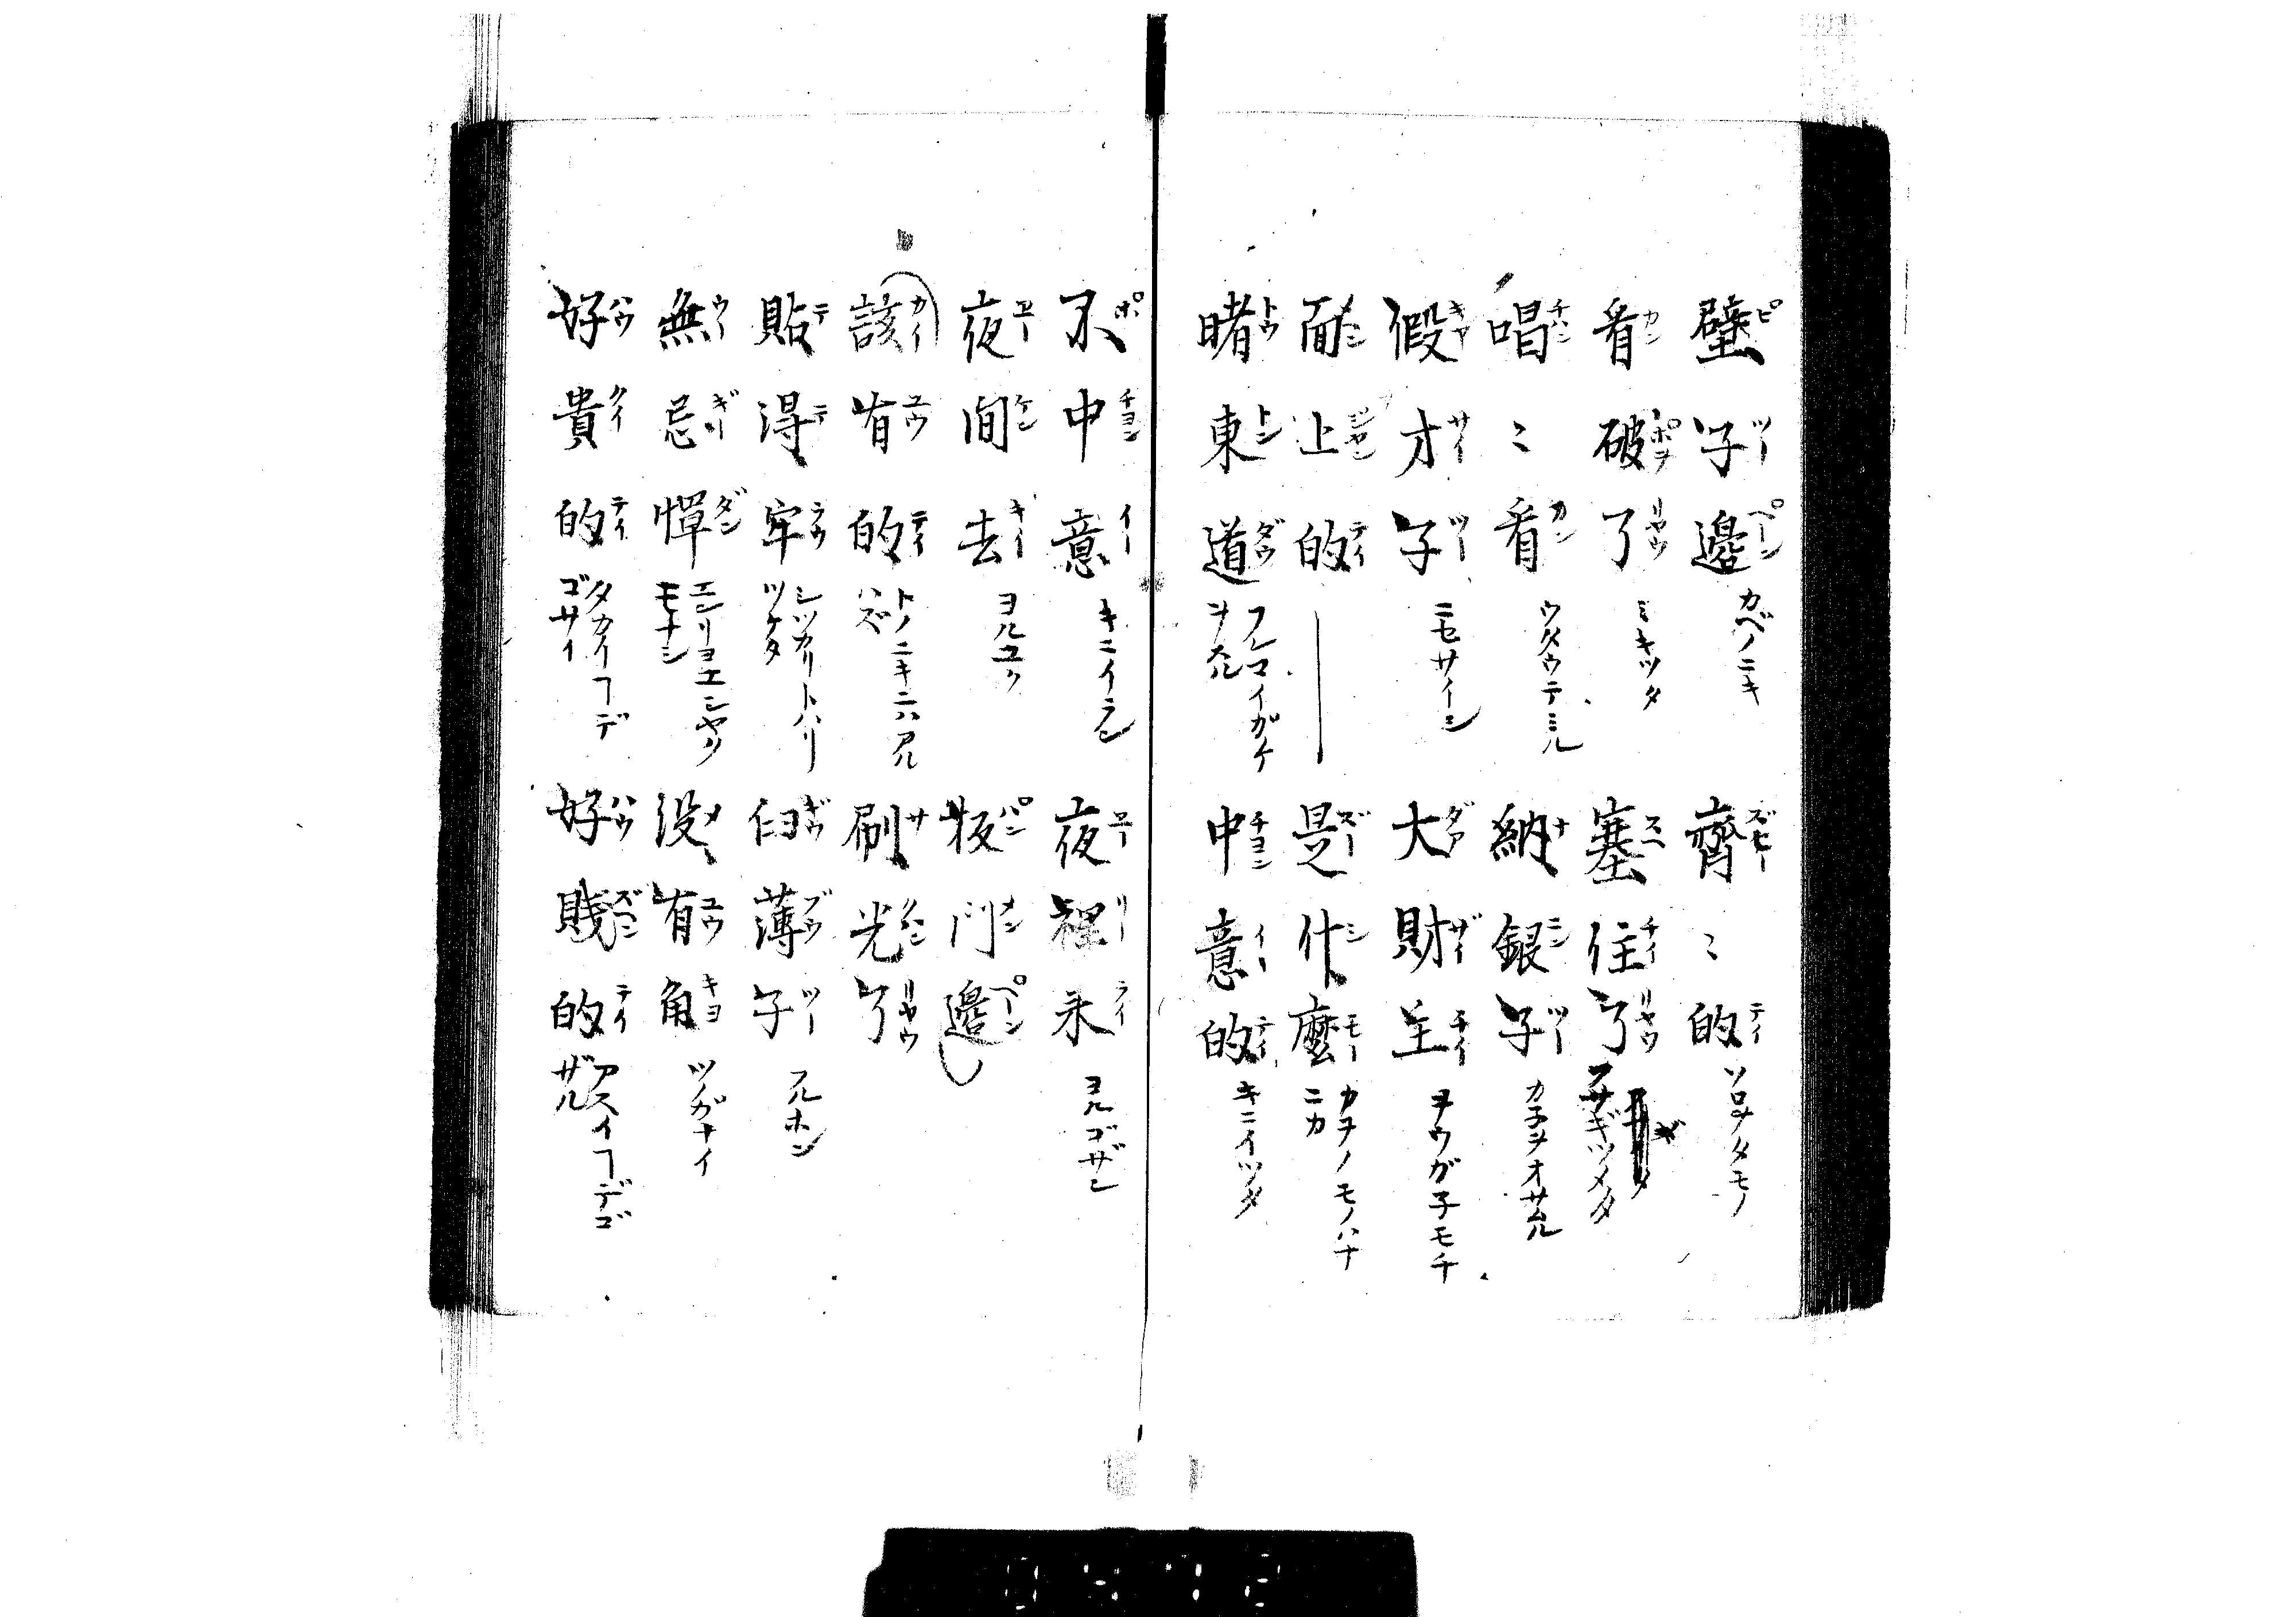 壁子邊 カベノニキ 齊〻的 ソロフタモノ
看破了 ミキツタ 塞住了 フサギツメタ
唱〻看 ウタウテミル 納銀子 カ子ヲオサムル
假才子 ニセサイシ 大財主 ヲウガ子モチ
面上的 是什麼 カヲノモノハナニカ
賭東道 フルマイガケヲスル 中意的 キニイツタ
不中意 キニイラン 夜裡来 ヨルゴザレ
夜間去 ヨルユク 板門邊
該有的 トノニキニハアルハズ 刷光了
貼得牢 シツカリトハリツケタ 旧薄子 フルホン
無忌憚 エンリヨエシヤクモナシ 没有角 ツノガナイ
好貴的 タカイヿデゴサイ 好賤的 アスイヿデゴザル